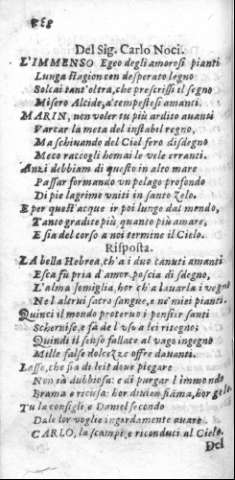 Del Sig. Carlo Noci.
L'IMMENSO Egeo degli amorosi pianti
Lunga stagion con desperato legno
Solcai tant'oltra, che prescrissi el segno
Misero Alcide, a' tempestosi amanti.
MARIN, non voler tu più ardito avanti
Varcar la meta del instabel regno,
Ma schivando del Ciel fero disdegno
Meco raccogli homai le vele erranti.
Anzi debbiam di questo in alto mare
Passar formando un pelago profondo
Di pie lagrime uniti in santo zelo.
E per quest'acque ir poi lungo dal mondo,
Tanto gradite più quanto più amare,
E sia del corso a noi termine il Cielo.
Risposta.
LA bella Hebrea, ch'a i duo canuti amanti
Esca fù pria d'amor, poscia di sdegno,
L'alma somiglia, hor ch'a lavarla i vegno
Nel altrui sacro sangue, e ne' miei pianti.
Quinci il mondo protervo i pensier santi
Schernisce, e fà de l'uso a lei ritegno;
Quindi il senso fallace al vago ingegno
Mille false dolcezze offre davanti.
Lasso, che sia di lei? dove piegare
Non sà dubbiosa: e di purgar l'immondo
Brama e ricusa: hor divien fiama, hor gelo.
Tu la consigli, e Daniel secondo
Da le lor voglie ingordamente avare
CARLO, la scampi, e riconduci al Cielo.
Del